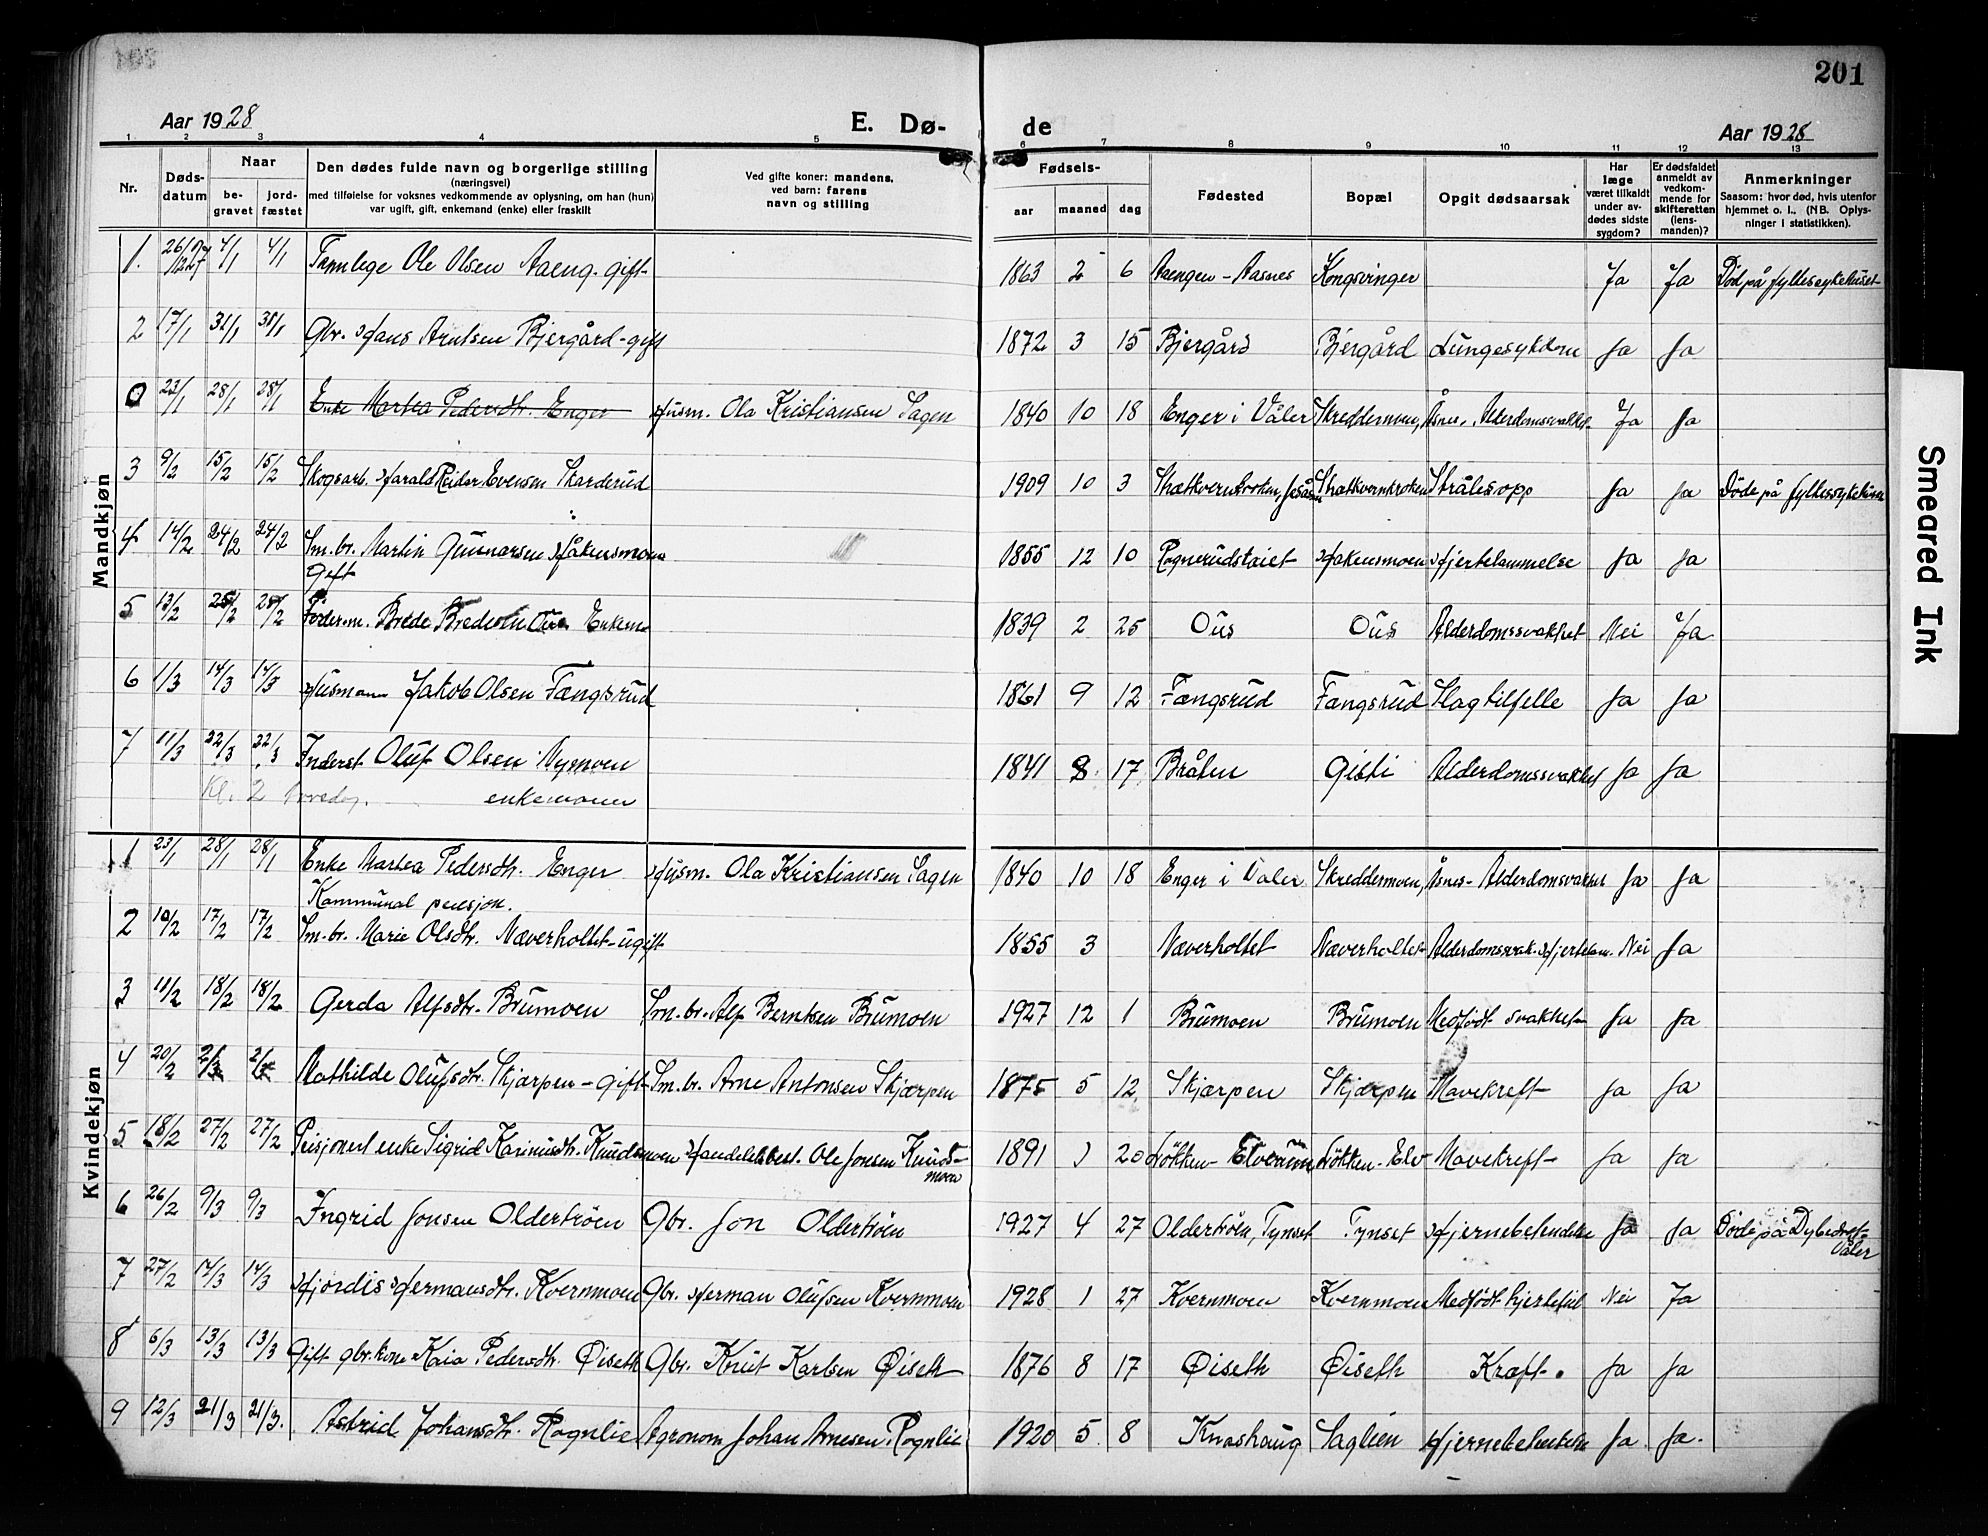 201
Aar 1928
E. Dø-
de
Aar 1928
1 2 3 4 5 6 7 8 9 10 11 12 13
Nr.
Døds-
datum
Naar
be-
gravet
jord-
fæstet
Den dødes fulde navn og borgerlige stilling
(næringsvei)
med tilføielse for voksnes vedkommende av oplysning, om han (hun)
var ugift, gift, enkemand (enke) eller fraskilt
Ved gifte koner: mandens,
ved barn: farens
navn og stilling
Fødsels-
aar
maaned
dag
Fødested
Bopæl
Opgit dødsaarsak
Har
læge
været tilkaldt
under av-
dødes sidste
sygdom?
Er dødsfaldet
anmeldt av
vedkom-
mende for
skifteretten
(lens-
manden)?
Anmerkninger
Saasom: hvor død, hvis utenfor
hjemmet o. l., (NB. Oplys-
ninger i statistikken).
Mandkjøn
1. 26/12 27 4/1 4/1 Tannlege Ole Olsen Aaeng. gift 1863 2 6 Aaengen - Aasnes Kongsvinger Ja Ja Død på fylkessykehuset
2 17/1 31/1 31/1 Gbr. Hans Arntsen Bjergård - gift 1872 3 15 Bjergård Bjergård Lungesykdom Ja Ja
0 23/1 28/1 28/1 Enke Martea Pedersdtr. Enger Husm. Ola Kristiansen Sagen 1840 10 18 Enger i Våler Skreddermoen, Åsnes, Alderdomssvakhet Ja Ja
3 9/2 15/2 15/2 Skogsarb. Harald Reidar Evensen Skarderud 1909 10 3 Skatkvernkroken Strålesopp Ja Ja Døde på fylkessykehuset
4 14/2 24/2 24/2 Sm.br. Martin Gunnarsen Håkensmoen 1855 12 10 Rognerudstaiet Håkensmoen Hjertelammelse Ja Ja
Gift
5 13/2 25/2 25/2 Føderm. Brede Bredesen Ous Enkem. 1839 2 25 Ous Ous Alderdomssvakhet Nei Ja
6 1/3 14/3 14/3 Husmann Jakob Olsen Fængsrud 1861 9 12 Fængsrud Fangsrud Slagtilfelle Ja Ja
7 11/3 22/3 22/3 Inderst Oluf Olsen Nymoen 1841 8 17 Bråten Gisti Alderdomssvakhet Ja Ja
Kl. 2 enkemann
Kvindekjøn
1 23/1 28/1 28/1 Enke Martea Pedersdtr. Enger Husm. Ola Kristiansen Sagen 1840 10 18 Enger i Våler Skreddermoen, Åsnes - Alderdomsvakhet Ja Ja
Kommunal pensjon.
2 10/2 17/2 17/2 Sm.br. Marie Olsdtr. Næverholtet - ugift 1855 3 Næverholtet Næverholtet Alderdomssvak. Hjertelam. Nei Ja
3 11/2 18/2 18/2 Gerda Alfsdtr. Brumoen Sm.br. Alf Berntsen Brumoen 1927 12 1 Brumoen Brumoen Medfødt svakhet Ja Ja
4 20/2 2/3 2/3 Mathilde Olufsdtr. Skjærpen - gift Sm.br. Arne Antonsen Skjærpen 1875 5 12 Skjærpen Skjærpen Mavekreft Ja Ja
5 18/2 27/2 27/2 Pensjonert enke Sigrid Karinusdtr. Knudsmoen Handelsbest. Ole Jonsen Knuds-
moen 1891 1 20 Løkken - Elverum Løkken - Elv Mavekreft Ja Ja
6 26/2 9/3 9/3 Ingrid Jonsen Oldertrøen Gbr. Jon Oldertrøen 1927 4 27 Oldertrøen, Tynset Tynset Hjernebetendelse Ja Ja Døde på Dybedret
Våler
7 27/2 14/3 14/3 Hjordis Hermansdtr. Kvernmoen Gbr. Herman Olufsen Kvernmoen 1928 1 27 Kvernmoen Kvernmoen Medfødt hjertefeil Nei Ja
8 6/3 13/3 13/3 Gift gbr.kone Kaia Pedersdtr. Øiseth Gbr. Knut Karlsen Øiseth 1876 8 17 Øiseth Øiseth Kræft. Ja Ja
9 12/3 21/3 21/3. Astrid Johansdtr. Rognlie Agronom Johan Arnesen Rognlie 1920 5 8 Knashaug Saglien Hjernebetendelse Ja Ja.
Smeared Ink